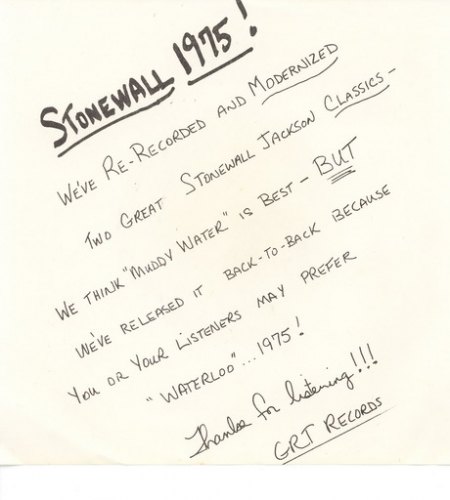 STONEWALL 1975!
WE'VE RE-RECORDED AND MODERNIZED
TWO GREAT STONEWALL JACKSON CLASSICS-
WE THINK "MUDDY WATER" IS BEST - BUT
WE'VE RELEASED IT BACK-TO-BACK BECAUSE
YOU OR YOUR LISTENERS MAY PREFER
"WATERLOO"... 1975!
Thanks for listening!!!
GRT RECORDS